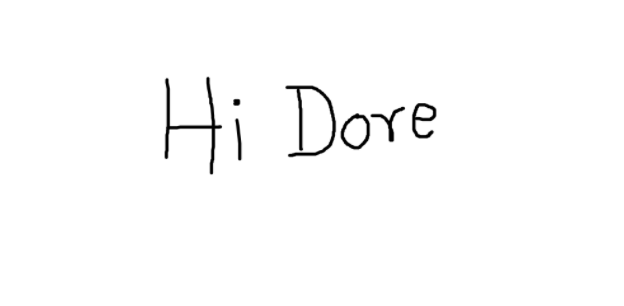 Hi Dore